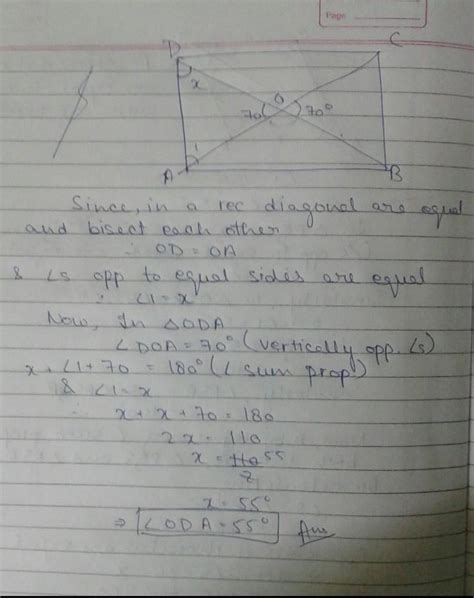 Page
D
C
x
70
O
70°
1
A
B
Since, in a rec diagonal are equal
and bisect each other
∴ OD = OA
& ∠s opp to equal sides are equal
∴ ∠1 = x
Now, In △ODA
∠DOA = 70° (vertically opp. ∠s)
x + ∠1 + 70 = 180° (∠ sum prop)
& ∠1 = x
∴ x + x + 70 = 180
2x = 110
x = 110 55
2
x = 55°
⇒ ∠ODA = 55° Ans